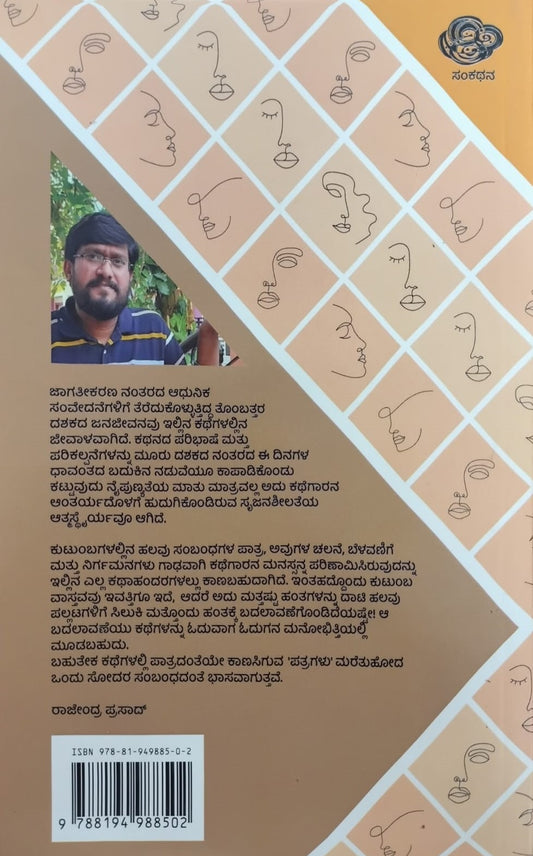 ಸಂಕಥನ
ಜಾಗತೀಕರಣ ನಂತರದ ಆಧುನಿಕ
ಸಂವೇದನೆಗಳಿಗೆ ತೆರೆದುಕೊಳ್ಳುತ್ತಿದ್ದ ತೊಂಬತ್ತರ
ದಶಕದ ಜನಜೀವನವು ಇಲ್ಲಿನ ಕಥೆಗಳಲ್ಲಿನ
ಜೀವಾಳವಾಗಿದೆ. ಕಥನದ ಪರಿಭಾಷೆ ಮತ್ತು
ಪರಿಕಲ್ಪನೆಗಳನ್ನು ಮೂರು ದಶಕದ ನಂತರದ ಈ ದಿನಗಳ
ಧಾವಂತದ ಬದುಕಿನ ನಡುವೆಯೂ ಕಾಪಾಡಿಕೊಂಡು
ಕಟ್ಟುವುದು ನೈಪುಣ್ಯತೆಯ ಮಾತು ಮಾತ್ರವಲ್ಲ ಅದು ಕಥೆಗಾರನ
ಆಂತರ್ಯದೊಳಗೆ ಹುದುಗಿಕೊಂಡಿರುವ ಸೃಜನಶೀಲತೆಯ
ಆತ್ಮಸ್ಥೈರ್ಯವೂ ಆಗಿದೆ.
ಕುಟುಂಬಗಳಲ್ಲಿನ ಹಲವು ಸಂಬಂಧಗಳ ಪಾತ್ರ, ಅವುಗಳ ಚಲನೆ, ಬೆಳವಣಿಗೆ
ಮತ್ತು ನಿರ್ಗಮನಗಳು ಗಾಢವಾಗಿ ಕಥೆಗಾರನ ಮನಸ್ಸನ್ನ ಪರಿಣಾಮಿಸಿರುವುದನ್ನು
ಇಲ್ಲಿನ ಎಲ್ಲ ಕಥಾಹಂದರಗಳಲ್ಲು ಕಾಣಬಹುದಾಗಿದೆ. ಇಂತಹದ್ದೊಂದು ಕುಟುಂಬ
ವಾಸ್ತವವು ಇವತ್ತಿಗೂ ಇದೆ, ಆದರೆ ಅದು ಮತ್ತಷ್ಟು ಹಂತಗಳನ್ನು ದಾಟಿ ಹಲವು
ಪಲ್ಲಟಗಳಿಗೆ ಸಿಲುಕಿ ಮತ್ತೊಂದು ಹಂತಕ್ಕೆ ಬದಲಾವಣೆಗೊಂಡಿದೆಯಷ್ಟೇ! ಆ
ಬದಲಾವಣೆಯು ಕಥೆಗಳನ್ನು ಓದುವಾಗ ಓದುಗನ ಮನೋಭಿತ್ತಿಯಲ್ಲಿ
ಮೂಡಬಹುದು.
ಬಹುತೇಕ ಕಥೆಗಳಲ್ಲಿ ಪಾತ್ರದಂತೆಯೇ ಕಾಣಸಿಗುವ 'ಪತ್ರಗಳು' ಮರೆತುಹೋದ
ಒಂದು ಸೋದರ ಸಂಬಂಧದಂತೆ ಭಾಸವಾಗುತ್ತವೆ.
ರಾಜೇಂದ್ರ ಪ್ರಸಾದ್
ISBN 978-81-949885-0-2
9 788194 988502